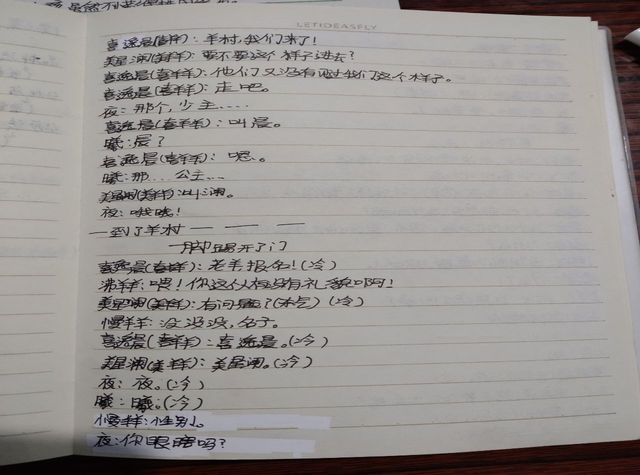 LETIDEASFLY
喜逸晨(喜羊羊)：羊村,我们来了!
美星澜(美羊羊)：要不要这个样子进去?
喜逸晨(喜羊羊)：他们又没有见过我们这个样子。
喜逸晨(喜羊羊)：走吧。
夜：那个,少主……
喜逸晨(喜羊羊)：叫晨。
曦：晨?
喜逸晨(喜羊羊)：嗯。
曦：那… 公主…
美星澜(美羊羊)：叫澜。
夜：哦哦!
一到了羊村一 一 一
一脚踢开了门
喜逸晨(喜羊羊)：老羊报名!(冷)
沸羊羊：喂!你这人有没有礼貌啊!
美星澜(美羊羊)：有问题?(杀气)(冷)
慢羊羊：没没没,名字。
喜逸晨(喜羊羊)：喜逸晨。(冷)
美星澜(美羊羊)：美星澜。(冷)
夜：夜。(冷)
曦：曦。(冷)
慢羊羊：性别。
夜：你眼瞎吗?